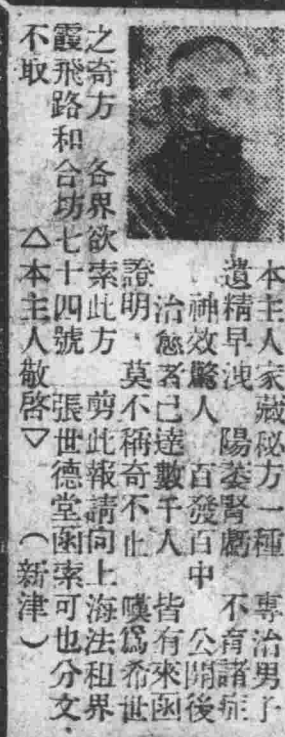 本主人家藏秘方一種 專治男子
遺精早洩 陽萎腎虧 不育諸症
神效驚人 百發百中 公開後
治愈者已達數千人 皆有來函
證明．莫不稱奇不止 嘆爲希世
之奇方 各界欲索此方 剪此報請向上海法租界
霞飛路和合坊七十四號 張世德堂函索可也分文
不取 △本主人敬啓▽ （新津）